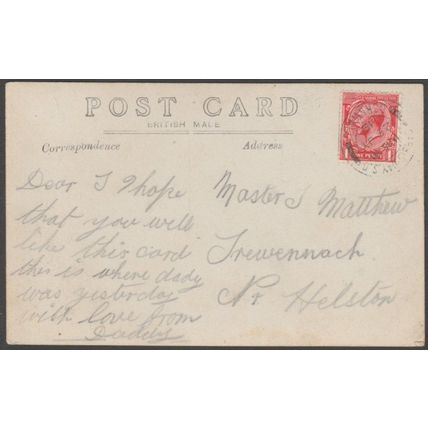 POST CARD
BRITISH MADE
Correspondence
Address
Dear I hope
that you will
like this card
this is where dady
was yesterday
with love from
Daddy
Master J Matthew
Trewennach
Nr Helston